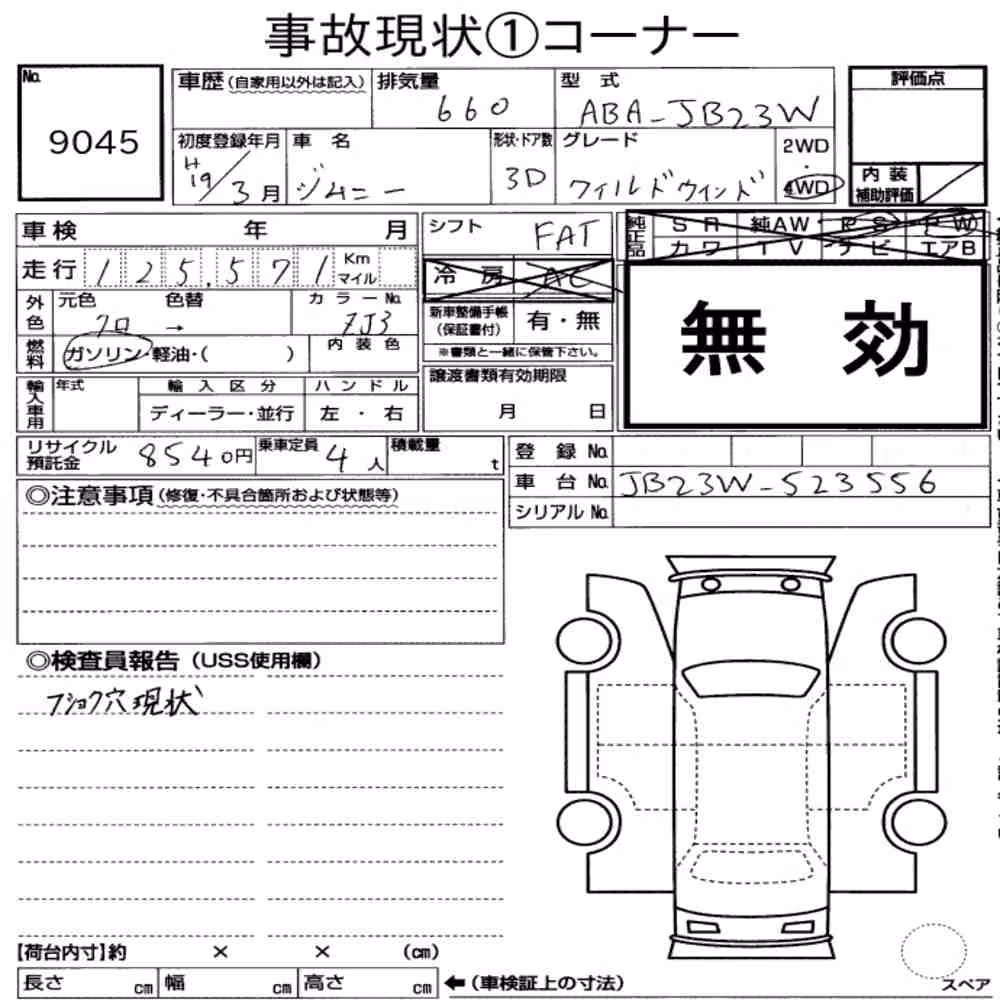 事故現状①コーナー
No. 9045
車歴(自家用以外は記入) 排気量 660 型式 ABA-JB23W 評価点
初度登録年月 H19/3月 車名 ジムニー 形状・ドア数 3D グレード ワイルドウインド 2WD・4WD 内装補助評価
車検 年 月 シフト FAT 純正品 SR 純AW PS PW
カワ TV ナビ エアB
走行 125,571 Km マイル 冷房 AC
外色 元色 クロ → 色替 カラーNo. ZJ3 新車整備手帳(保証書付) 有・無
無効
燃料 ガソリン・軽油・( ) 内装色 ※書類と一緒に保管下さい。
輸入車用 年式 輸入区分 ハンドル 譲渡書類有効期限
ディーラー・並行 左・右 月 日
リサイクル預託金 8540円 乗車定員 4人 積載量 t 登録No.
車台No. JB23W-523556
シリアルNo.
◎注意事項(修復・不具合箇所および状態等)
◎検査員報告(USS使用欄)
フショク穴現状
【荷台内寸】約 × × (cm)
長さ cm 幅 cm 高さ cm ←(車検証上の寸法)
スペア